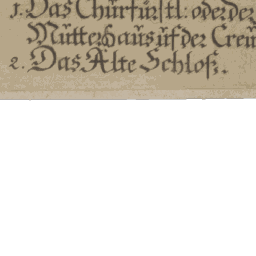 1. Das Churfürstl: oder der
Mutterhaus uf der Creu
2. Das Alte Schloß.